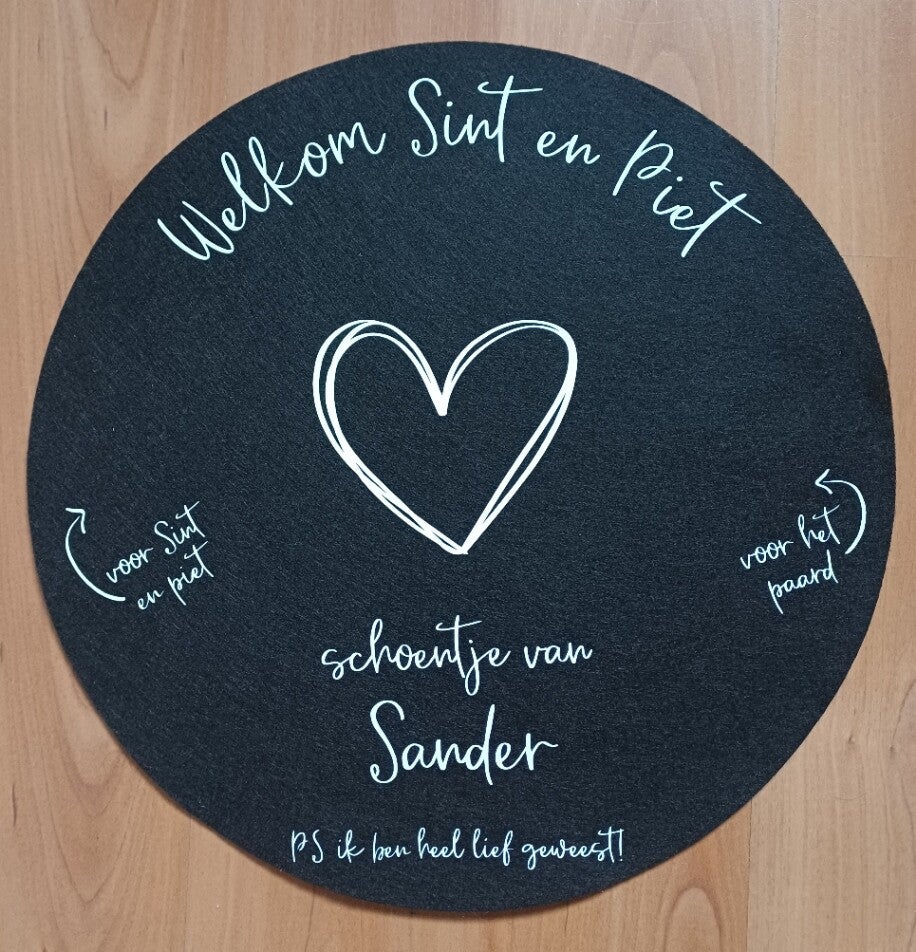 Welkom Sint en Piet
voor Sint
en piet
voor het
paard
schoentje van
Sander
PS ik ben heel lief geweest!